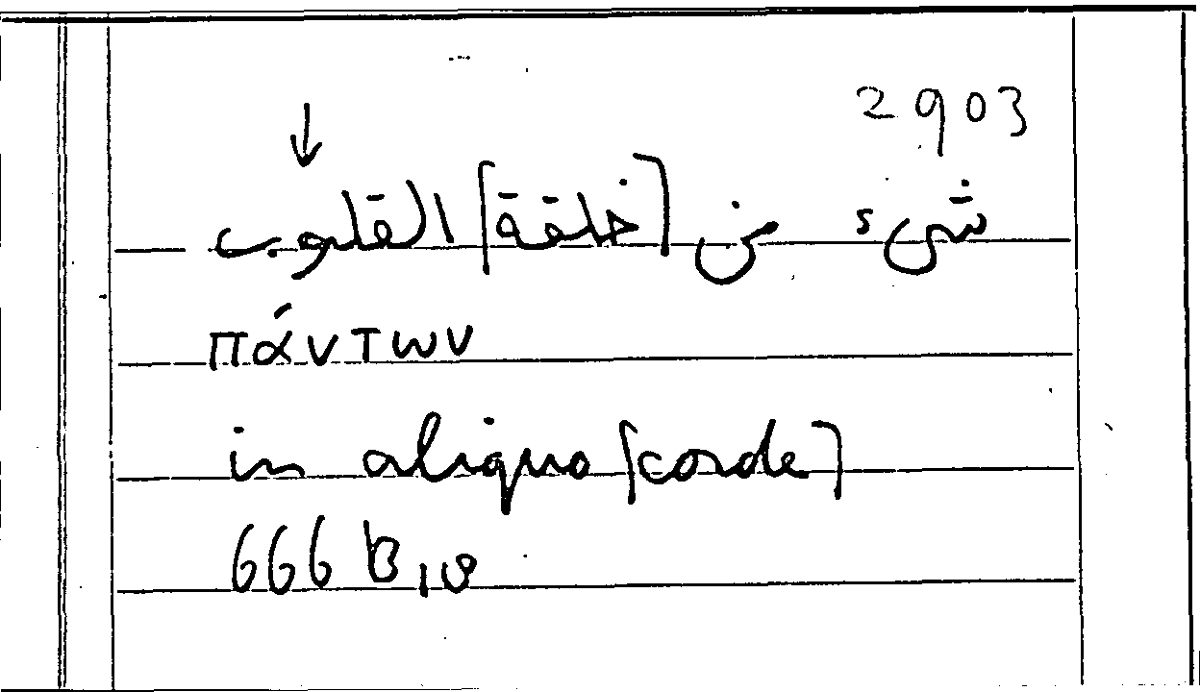 2903
↓
شىء من [خلقة] القلوب
πάντων
in aliquo [corde]
666 b 19